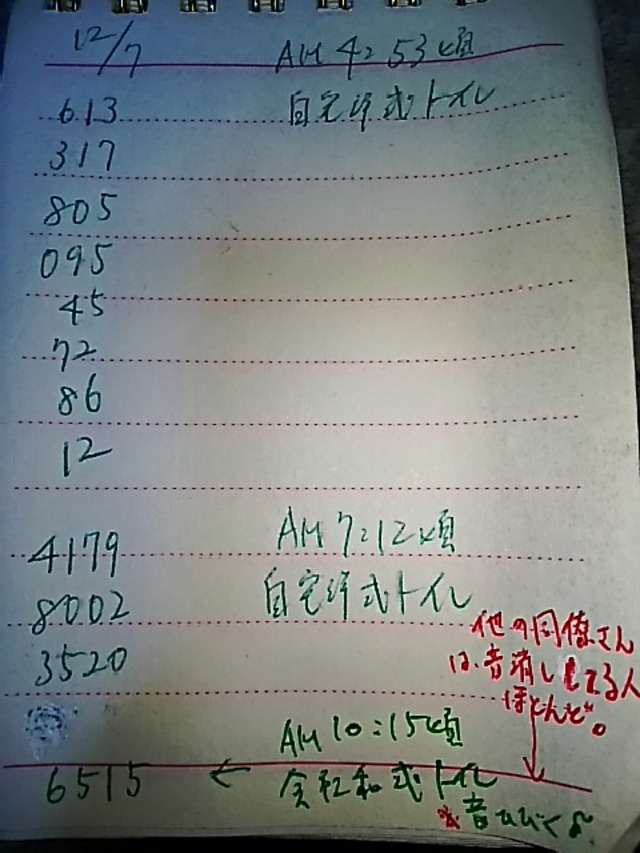 12/7 AM 4:53頃
613 自宅洋式トイレ
317
805
095
45
72
86
12
AM 7:12頃
4179
8002 自宅洋式トイレ
3520
他の同僚さん
は、音消ししてる人
ほとんど。
AM 10:15頃
6515 ← 会社和式トイレ
※音ひびく